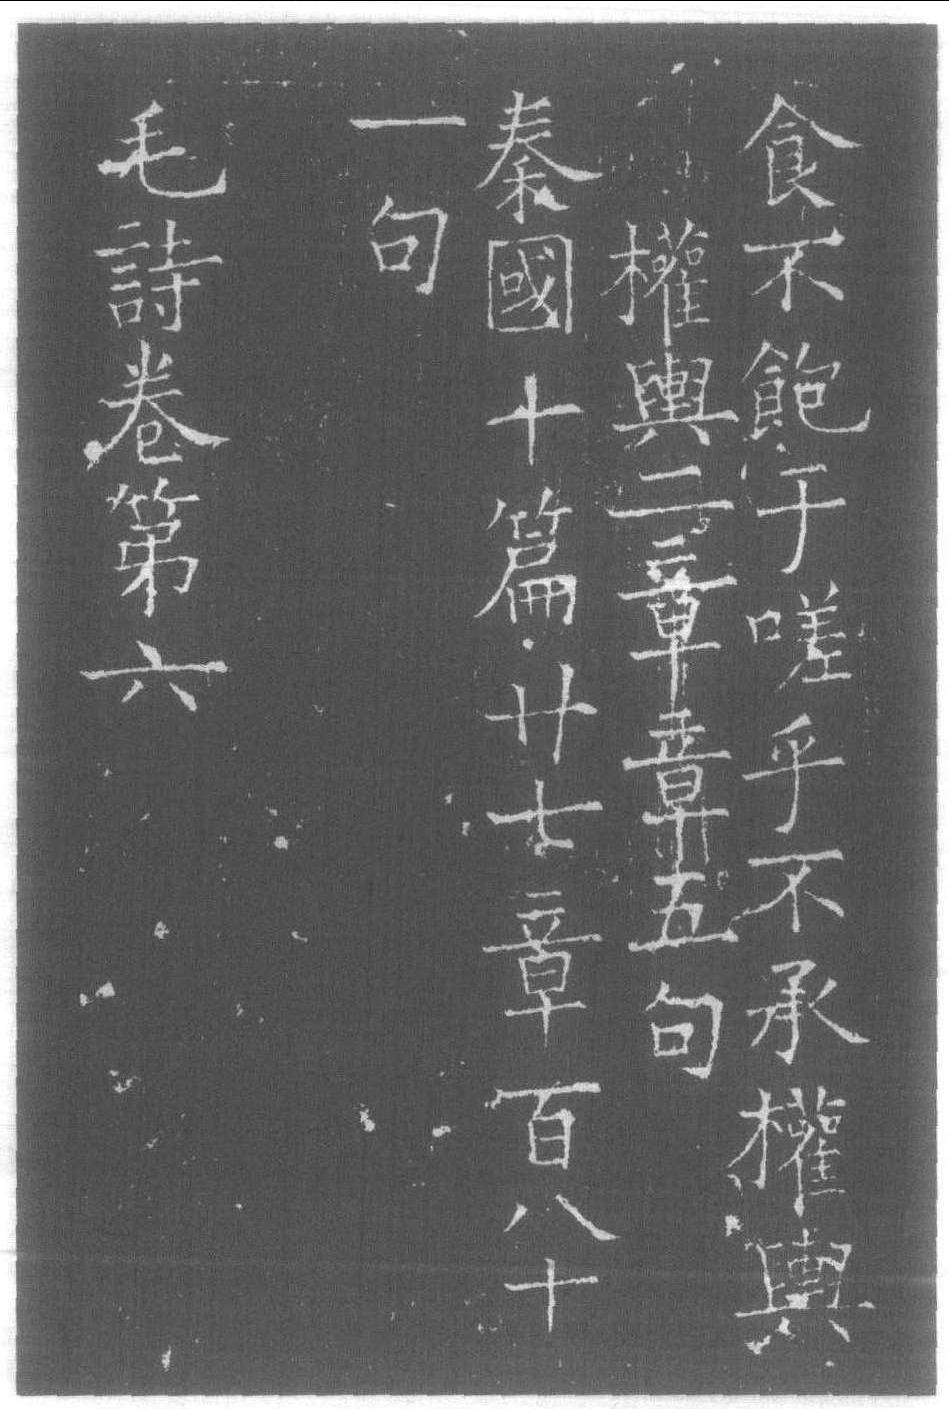 食不飽于嗟乎不承權輿
權輿二章章五句
秦國十篇廿七章百八十
一句
毛詩卷第六